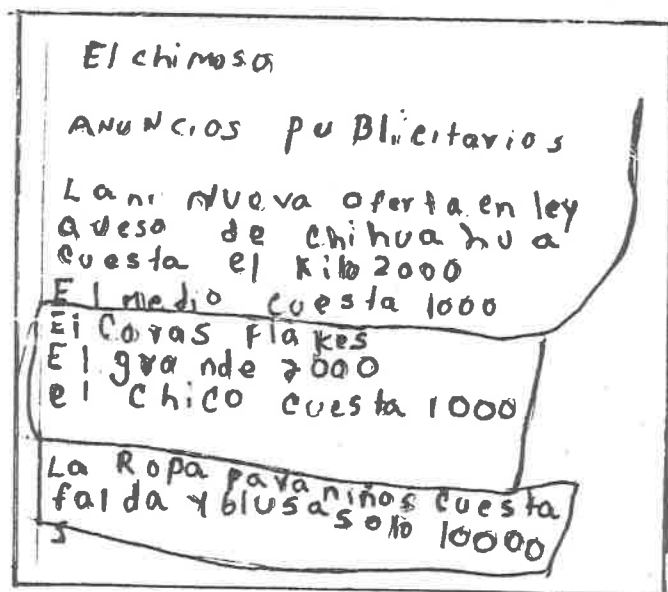 El chimosa
ANUNCIOS puBlicitarios
Lani Nueva oferta en ley
queso de chihuahua
cuesta el kilo 2000
El medio cuesta 1000
El Coras Flakes
El grande 2000
el chico cuesta 1000
La Ropa para niños cuesta
falda y blusa solo 10000
s